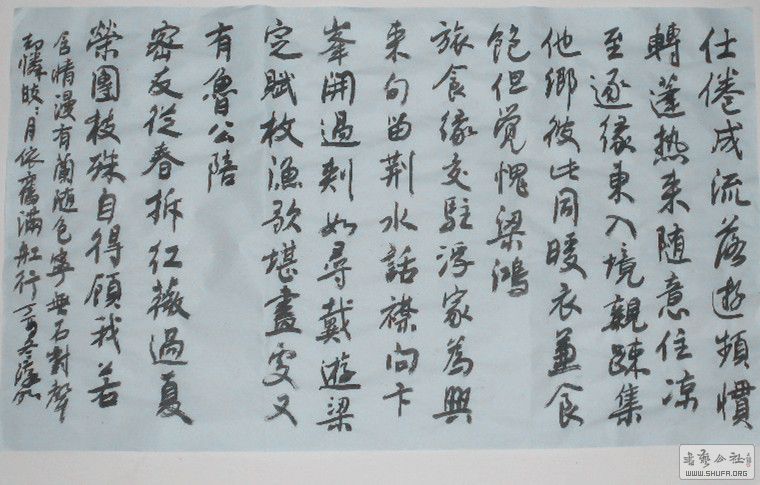 仕倦成流落遊頻慣
轉蓬热来随意住凉
至逐缘東入境親踈集
他鄉彼此同暖衣兼食
飽但觉愧梁鴻
旅食缘交駐浮家為興
来句留荆水話襟向卞
峯開過剡如尋戴遊梁
定賦枚漁歌堪畫處又
有魯公陪
密友從春拆红薇過夏
榮團枝殊自得顧我若
含情漫有蘭随色寧無石對聲
却憐皎皎月依舊滿舡行
書藝公社
WWW.SHUFA.ORG